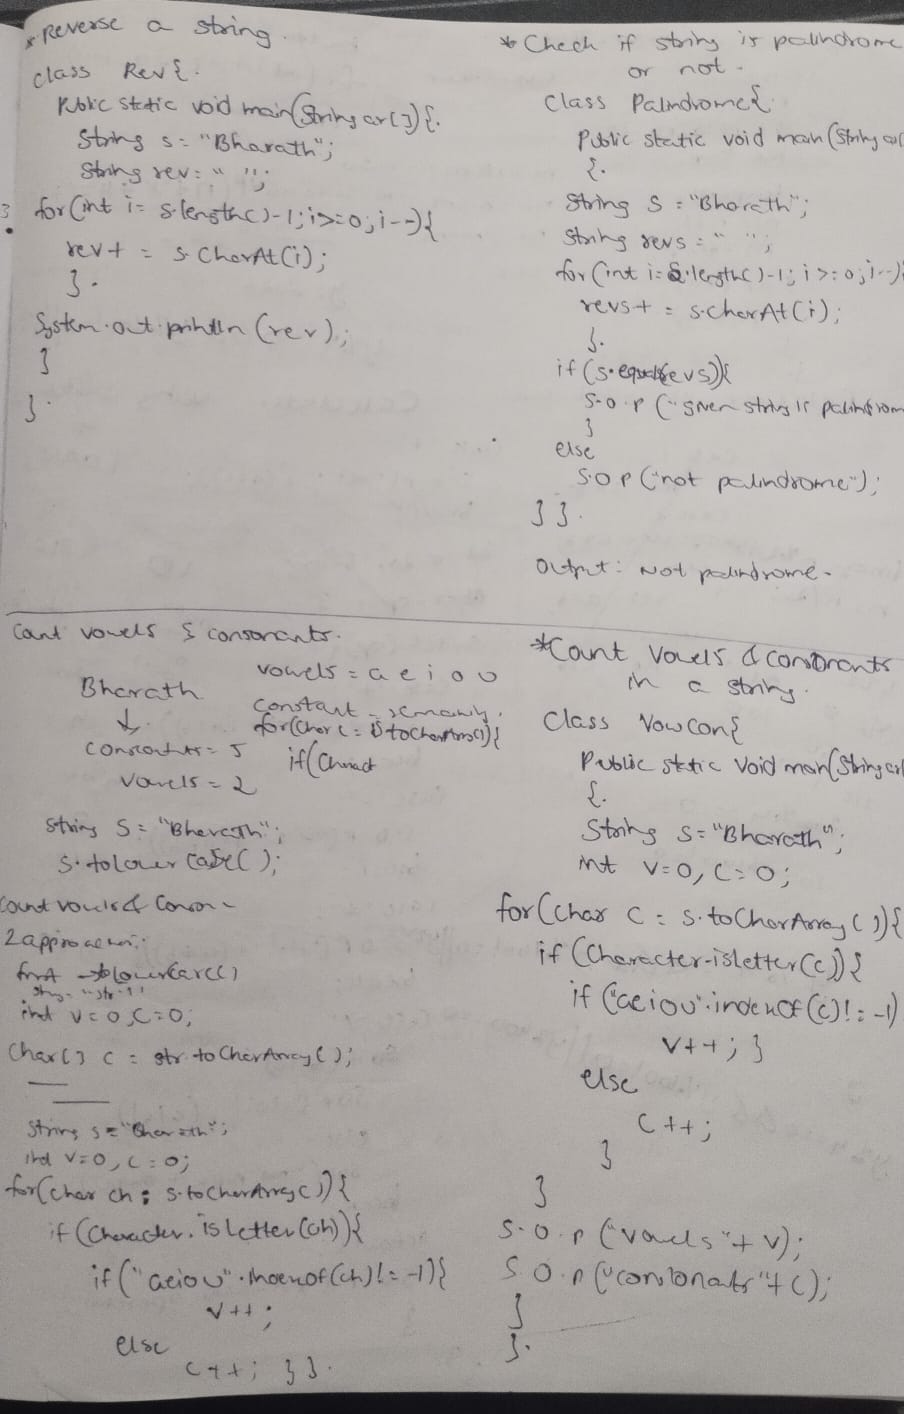 * Reverse a string.
class Rev{.
Public static void main(String ar[]){.
String s = "Bharath";
String rev = " ";
for(int i = s.length()-1;i>=0;i--){
rev+ = s.CharAt(i);
}.
System.out.println(rev);
}
}.
* Check if string is palindrome
or not.
Class Palindrome{
Public static void main(String ar[
{.
String S = "Bharath";
String revs = " ";
for(int i=S.length()-1; i>=0;i--){
revs+ = s.charAt(i);
}.
if(s.equals(revs)){
S.o.p("given string is palindrom
}
else
S.O.P("not palindrome");
} }.
Output: Not palindrome.
Count vowels & consonants.
Bharath
vowels = a e i o u
↓.
constant = remaining.
for(char c = S.toCharArray()){
consonants = 5
if(Charact
Vowels = 2
String S = "Bharath";
S.toLowerCase();
Count vowels & Conson -
2 approaches:
first toLowerCase()
int v=0,c=0;
Char[] c = str.toCharArray();
String s = "Bharath";
int v=0, c=0;
for(char ch : s.toCharArray()){
if(Character.isLetter(ch)){
if("aeiou".indexOf(ch)!=-1){
v++;
else
c++; } }.
* Count Vowels & Consonants
in a string.
Class VowCon{
Public static Void main(String ar
{.
String s="Bharath";
int v=0, c=0;
for(Char c = s.toCharArray()){
if(Character.isletter(c)){
if("aeiou".indexOf(c)!=-1)
v++; }
else
c++;
}
}
S.O.P("vowels"+v);
S.O.P("consonants"+c);
}
}.